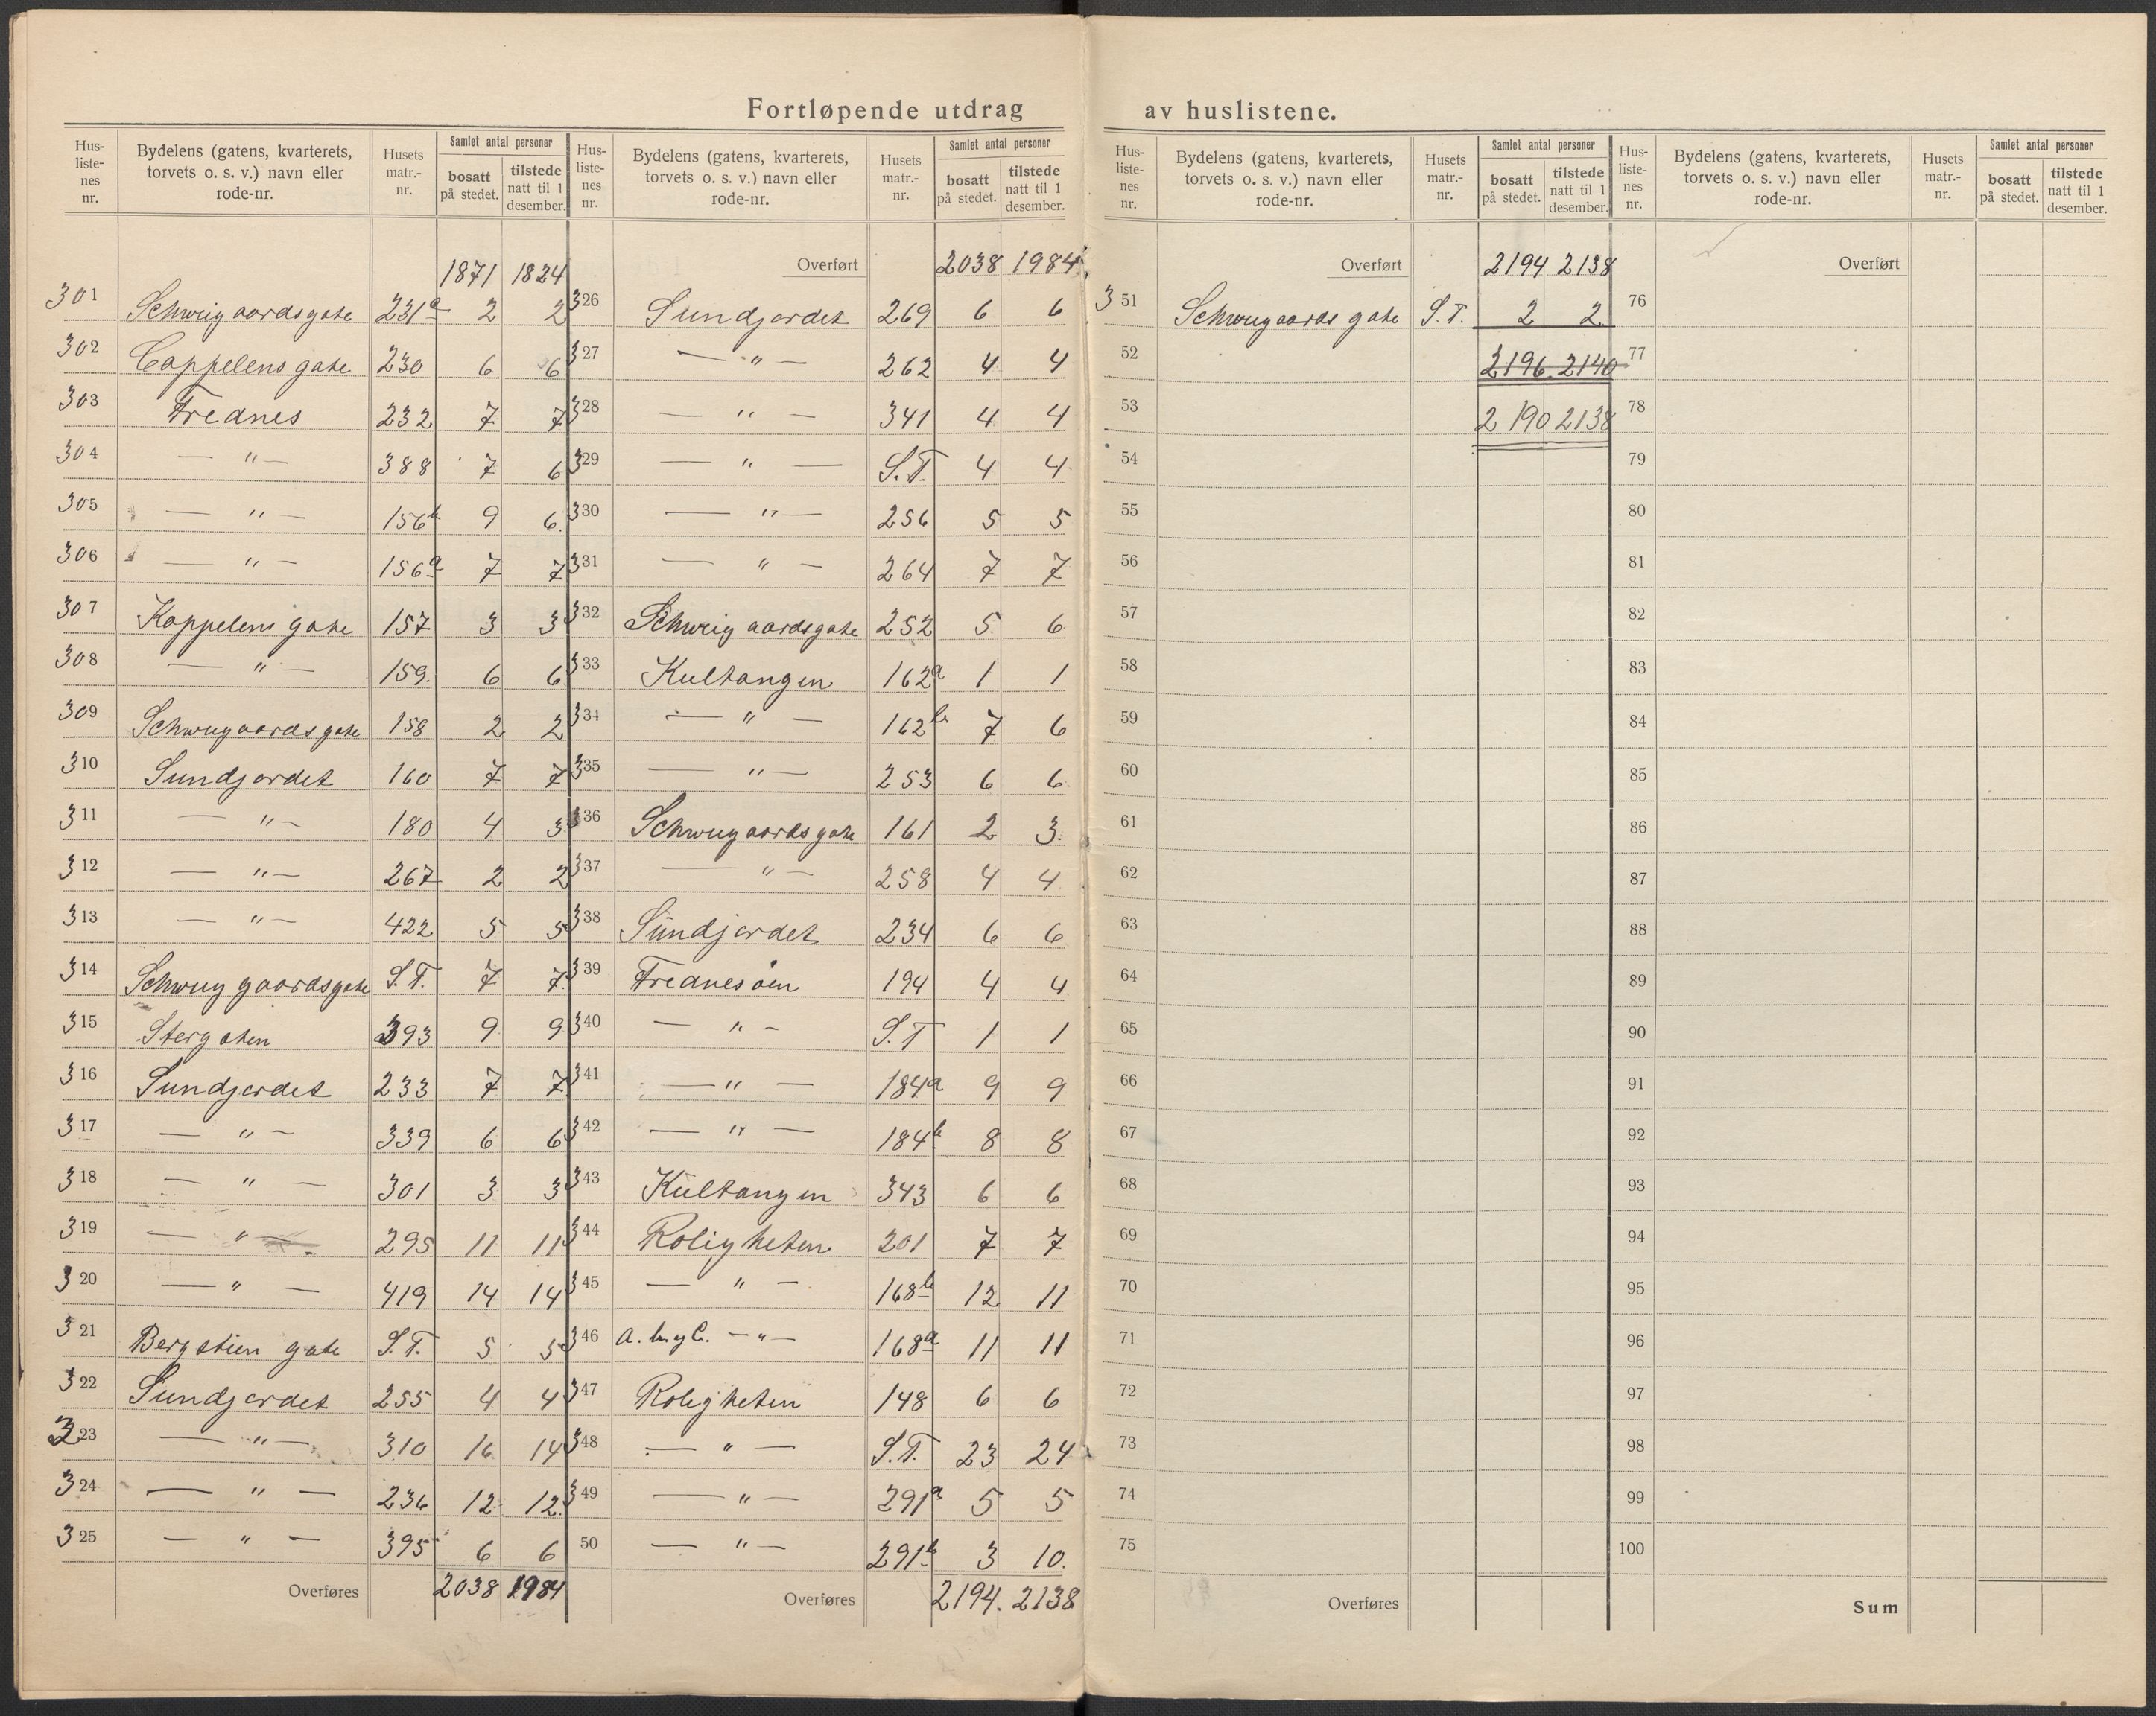 Fortløpende utdrag av huslistene.
Hus-liste-nes nr. | Bydelens (gatens, kvarterets, torvets o. s. v.) navn eller rode-nr. | Husets matr.-nr. | Samlet antal personer bosatt på stedet. | tilstede natt til 1 desember.
1871 1824
301 Schweigaardsgate 231a 2 2
302 Cappelens gate 230 6 6
303 Frednes 232 7 7
304 — " — 388 7 6
305 — " — 156b 9 6
306 — " — 156a 7 7
307 Kappelens gate 157 3 3
308 — " — 159. 6 6
309 Schweigaardsgate 158 2 2
310 Sundjordet 160 7 7
311 — " — 180 4 3
312 — " — 267 2 2
313 — " — 422 5 5
314 Schweigaardsgate S.T. 7 7
315 Stergaten 393 9 9
316 Sundjordet 233 7 7
317 — " — 339 6 6
318 — " — 301 3 3
319 — " — 295 11 11
320 — " — 419 14 14
321 Bergstien gate S.T. 5 5
322 Sundjordet 255 4 4
323 — " — 310 16 14
324 — " — 236 12 12.
325 — " — 395 6 6
Overføres 2038 1984
Hus-liste-nes nr. | Bydelens (gatens, kvarterets, torvets o. s. v.) navn eller rode-nr. | Husets matr.-nr. | Samlet antal personer bosatt på stedet. | tilstede natt til 1 desember.
Overført 2038 1984
326 Sundjordet 269 6 6
327 — " — 262 4 4
328 — " — 341 4 4
329 — " — S.T. 4 4
330 — " — 256 5 5
331 — " — 264 7 7
332 Schweigaardsgate 252 5 6
333 Kultangen 162a 1 1
334 — " — 162b 7 6
335 — " — 253 6 6
336 Schweigaardsgate 161 2 3.
337 — " — 258 4 4
338 Sundjordet 234 6 6
339 Frednesøen 194 4 4
340 — " — S.T 1 1
341 — " — 184a 9 9
342 — " — 184b 8 8
343 Kultangen 343 6 6
344 Roligheten 201 7 7
345 — " — 168b 12 11
346 — " — 168a 11 11
347 Roligheten 148 6 6
348 — " — S.T. 23 24
349 — " — 291a 5 5
50 — " — 291b 3 10.
Overføres 2194. 2138
Hus-liste-nes nr. | Bydelens (gatens, kvarterets, torvets o. s. v.) navn eller rode-nr. | Husets matr.-nr. | Samlet antal personer bosatt på stedet. | tilstede natt til 1 desember.
Overført 2194 2138
351 Schweigaards gate S.T. 2 2
52 2196 2140
53 2190 2138
54
55
56
57
58
59
60
61
62
63
64
65
66
67
68
69
70
71
72
73
74
75
Overføres
Hus-liste-nes nr. | Bydelens (gatens, kvarterets, torvets o. s. v.) navn eller rode-nr. | Husets matr.-nr. | Samlet antal personer bosatt på stedet. | tilstede natt til 1 desember.
Overført
76
77
78
79
80
81
82
83
84
85
86
87
88
89
90
91
92
93
94
95
96
97
98
99
100
Sum